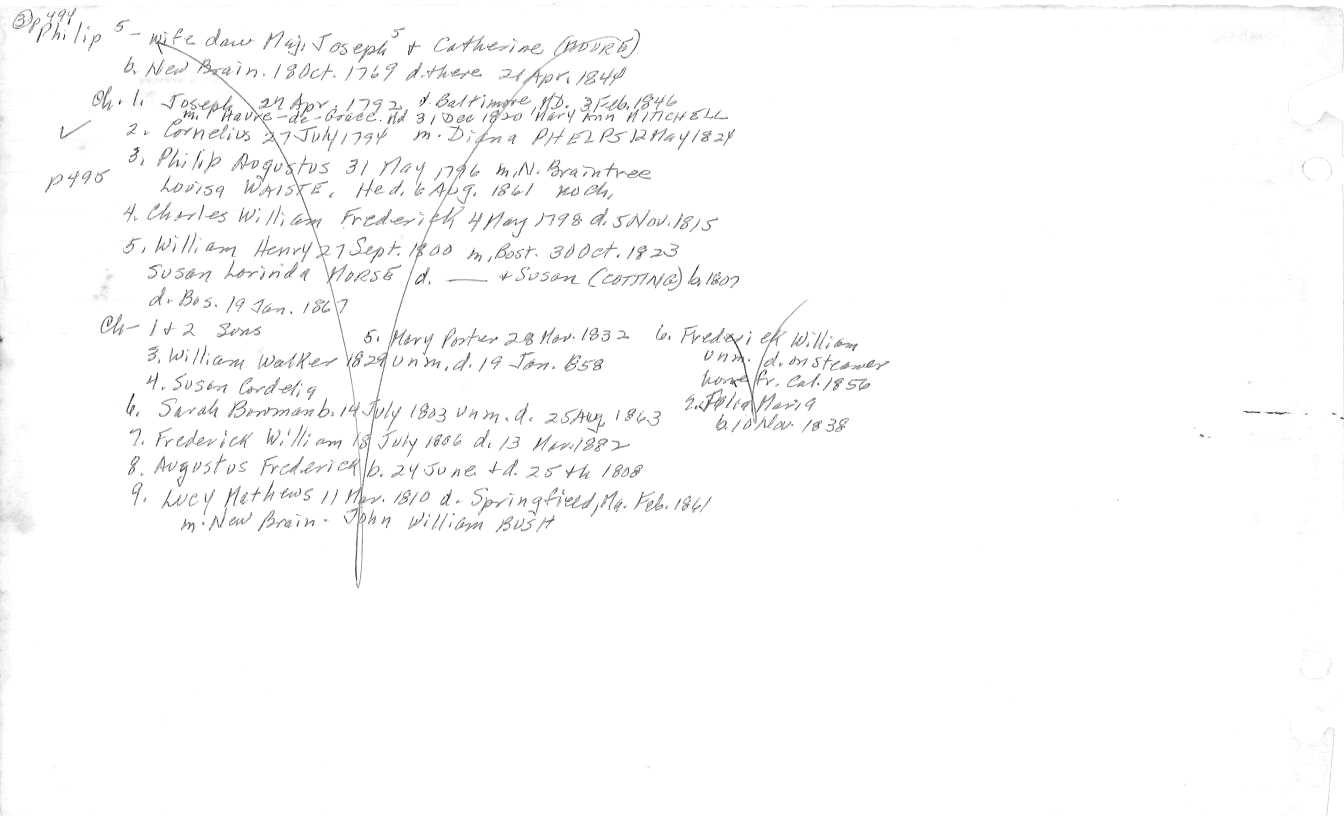 ③ p 494
Philip 5 - wife daw Maj. Joseph 5 + Catherine (MOORE)
b. New Brain. 18 Oct. 1769 d. there 21 Apr. 1844
Ch. 1. Joseph 24 Apr. 1792 d. Baltimore, MD. 3 Feb. 1846
m. Havre-de-Grace. Md 31 Dec 1820 Mary Ann MITCHELL
✓ 2. Cornelius 27 July 1794 m. Diana PHELPS 12 May 1824
3. Philip Augustus 31 May 1796 m. N. Braintree
p 495 Louisa WAISTE. He d. 6 Aug. 1861 no ch.
4. Charles William Frederick 4 May 1798 d. 5 Nov. 1815
5. William Henry 27 Sept. 1800 m. Bost. 30 Oct. 1823
Susan Lorinda MORSE d. — + Susan (COTTING) b. 1807
d. Bos. 19 Jan. 1867
Ch - 1 + 2 Sons 5. Mary Porter 28 Mar. 1832 6. Frederick William
3. William Walker 1829 unm. d. 19 Jan. 1858 unm. d. on steamer
4. Susan Cordelia home fr. Cal. 1856
6. Sarah Bowman b. 14 July 1803 unm. d. 25 Aug 1863 Maria
7. Frederick William 13 July 1806 d. 13 Mar. 1882 b. 10 Nov. 1838
8. Augustus Frederick b. 24 June + d. 25th 1808
9. Lucy Mathews 11 Mar. 1810 d. Springfield, Ma. Feb. 1861
m. New Brain. John William BUSH